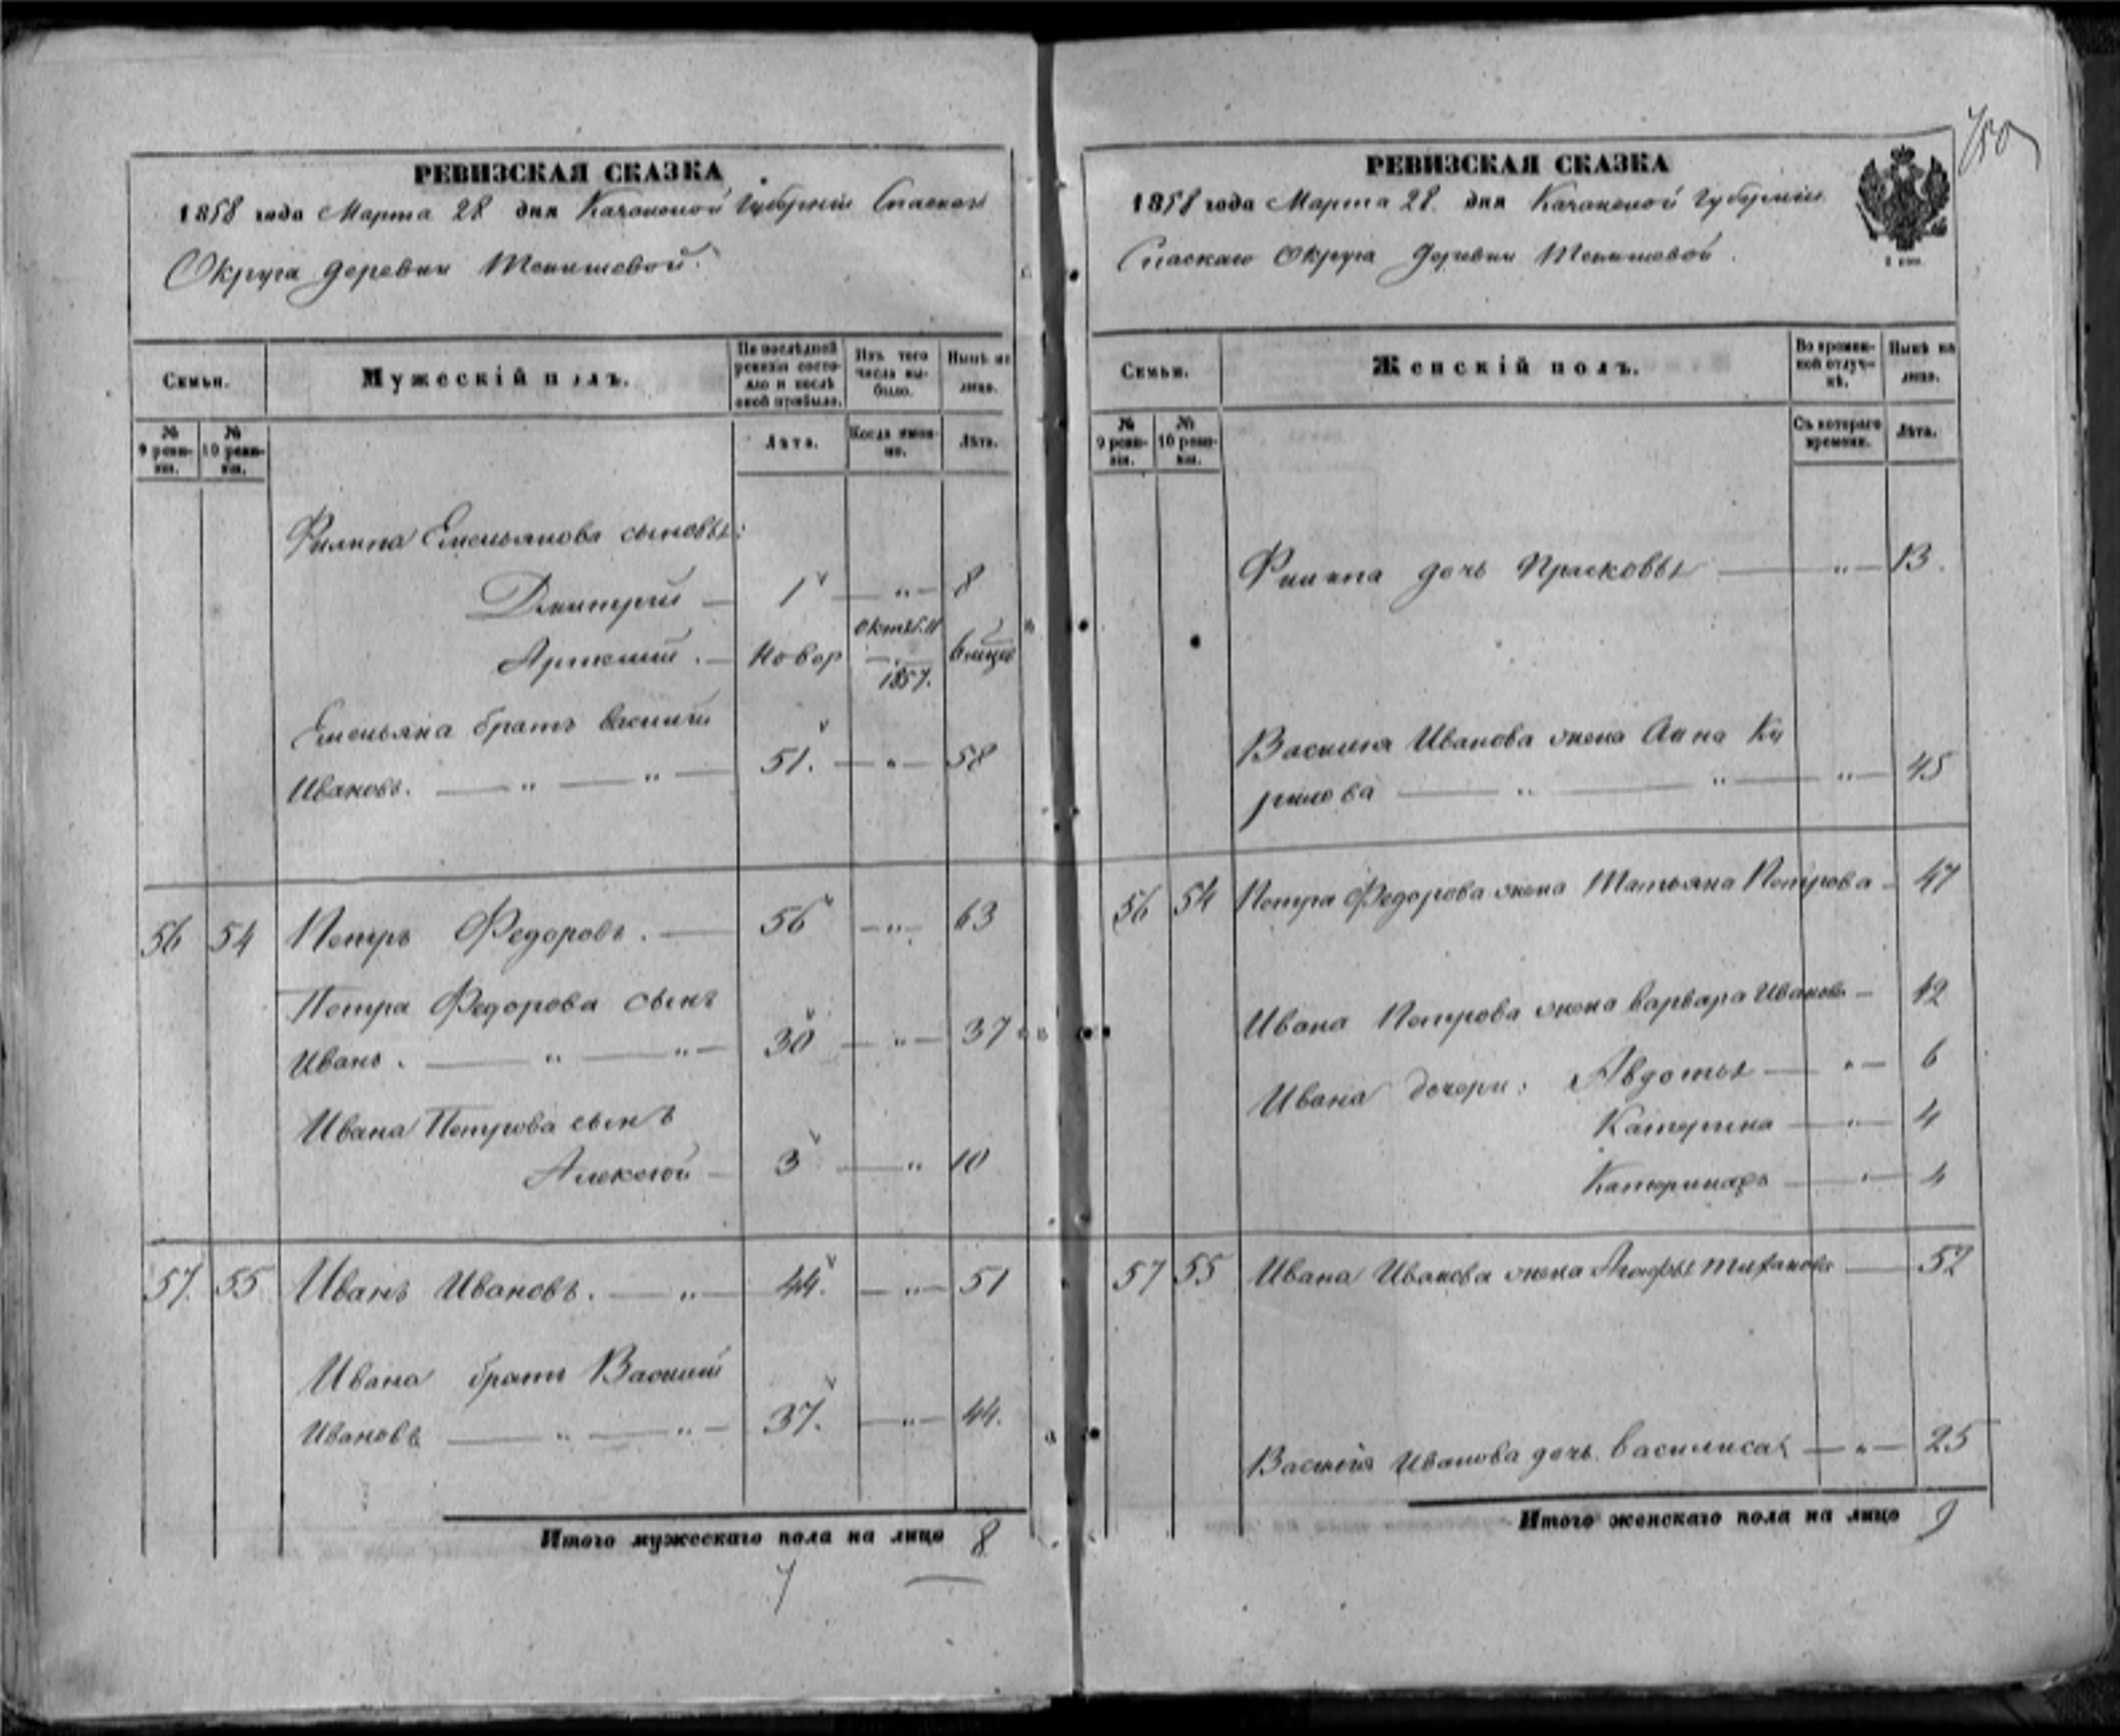 750
РЕВИЗСКАЯ СКАЗКА
1858 года Марта 28 дня Казанской Губерніи Спаскаго
Округа деревни
Семьи.
Мужескій полъ.
По послѣдней ревизіи состояло и послѣ оной прибыло.
Изъ того числа выбыло.
Нынѣ на лицо.
№ 9 ревизіи.
№ 10 ревизіи.
Лѣта.
Когда именно.
Лѣта.
Филипа Емельянова сыновья:
Дмитрей — 1 — " — 8
новор 1857.
Емельяна братъ Василий
Ивановъ. — " — " — 51. — " — 58
56 54 Петръ Федоровъ. — 56 — " — 63
Петра Федорова сынъ
Иванъ. — " — " — 30 — " — 37
Ивана Петрова сынъ
Алексей — 3 — " 10
57. 55 Иванъ Ивановъ. — " — 44. — " — 51
Ивана братъ Василий
Ивановъ — " — " — 37. — " — 44.
Итого мужескаго пола на лицо 8
7
РЕВИЗСКАЯ СКАЗКА
1858 года Марта 28 дня Казанской Губерніи
Спаскаго Округа деревни
Семьи.
Женскій полъ.
Во временной отлучкѣ.
Нынѣ на лицо.
№ 9 ревизіи.
№ 10 ревизіи.
Съ котораго времени.
Лѣта.
Филипа дочь Прасковья — " — 13.
Василия Иванова жена Анна Ки
рилова — " — " — " — 45
56 54 Петра Федорова жена Татьяна Петрова — 47
Ивана Петрова жена Варвара Иванова — 42
Ивана дочери: Авдотья — " — 6
Катерина — " — 4
4
57 55 Ивана Иванова жена — 52
Василия Иванова дочь Василиса — " — 25
Итого женскаго пола на лицо 9